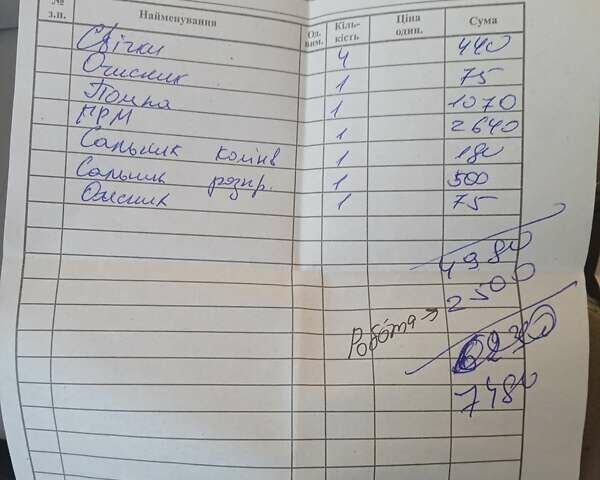 № з.п. Найменування Од. вим. Кіль-кість Ціна один. Сума
Свічки 4 440
Очисник 1 75
Помпа 1 1070
ГРМ 1 2640
Сальник колінв 1 180
Сальник розпр. 1 500
Очисник 1 75
4980
Робота → 2500
7480